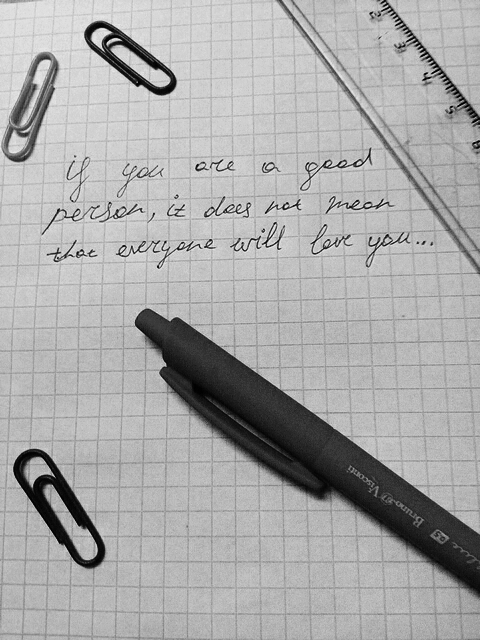 if you are a good
person, it does not mean
that everyone will love you...
Bruno Visconti
0.5
2
3
4
5
6